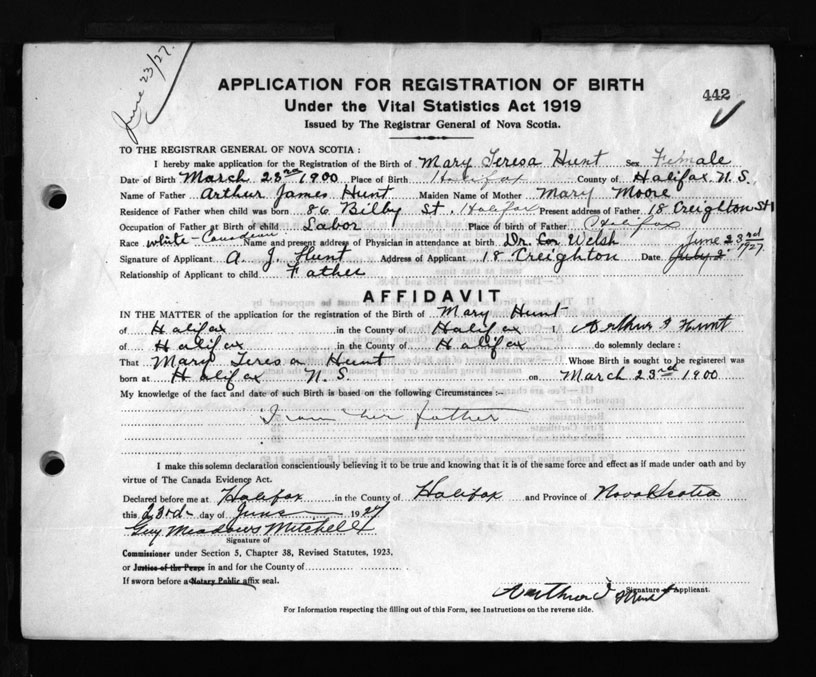 June 23/27.
APPLICATION FOR REGISTRATION OF BIRTH
442
Under the Vital Statistics Act 1919
Issued by The Registrar General of Nova Scotia.
TO THE REGISTRAR GENERAL OF NOVA SCOTIA :
I hereby make application for the Registration of the Birth of Mary Teresa Hunt Sex Female
Date of Birth March 23rd 1900 Place of Birth Halifax County of Halifax N. S.
Name of Father Arthur James Hunt Maiden Name of Mother Mary Moore
Residence of Father when child was born 86 Bilby St. Halifax Present address of Father 18 Creighton St
Occupation of Father at Birth of child Labor Place of birth of Father Halifax
Race white - Name and present address of Physician in attendance at birth Dr. Welsh June 23rd 1927.
Signature of Applicant A. J. Hunt Address of Applicant 18 Creighton Date July 2
Relationship of Applicant to child Father
AFFIDAVIT
IN THE MATTER of the application for the registration of the Birth of Mary Hunt
of Halifax in the County of Halifax I, Arthur J Hunt
of Halifax in the County of Halifax do solemnly declare :
That Mary Teresa Hunt Whose Birth is sought to be registered was
born at Halifax N. S. on March 23rd 1900
My knowledge of the fact and date of such Birth is based on the following Circumstances :-
I am her father
I make this solemn declaration conscientiously believing it to be true and knowing that it is of the same force and effect as if made under oath and by
virtue of The Canada Evidence Act.
Declared before me at Halifax in the County of Halifax and Province of Nova Scotia
this 23rd day of June 1927
Guy Meadows Mitchell
Signature of
Commissioner under Section 5, Chapter 38, Revised Statutes, 1923,
or Justice of the Peace in and for the County of
If sworn before a Notary Public affix seal.
Arthur J Hunt
Signature of Applicant.
For Information respecting the filling out of this Form, see Instructions on the reverse side.